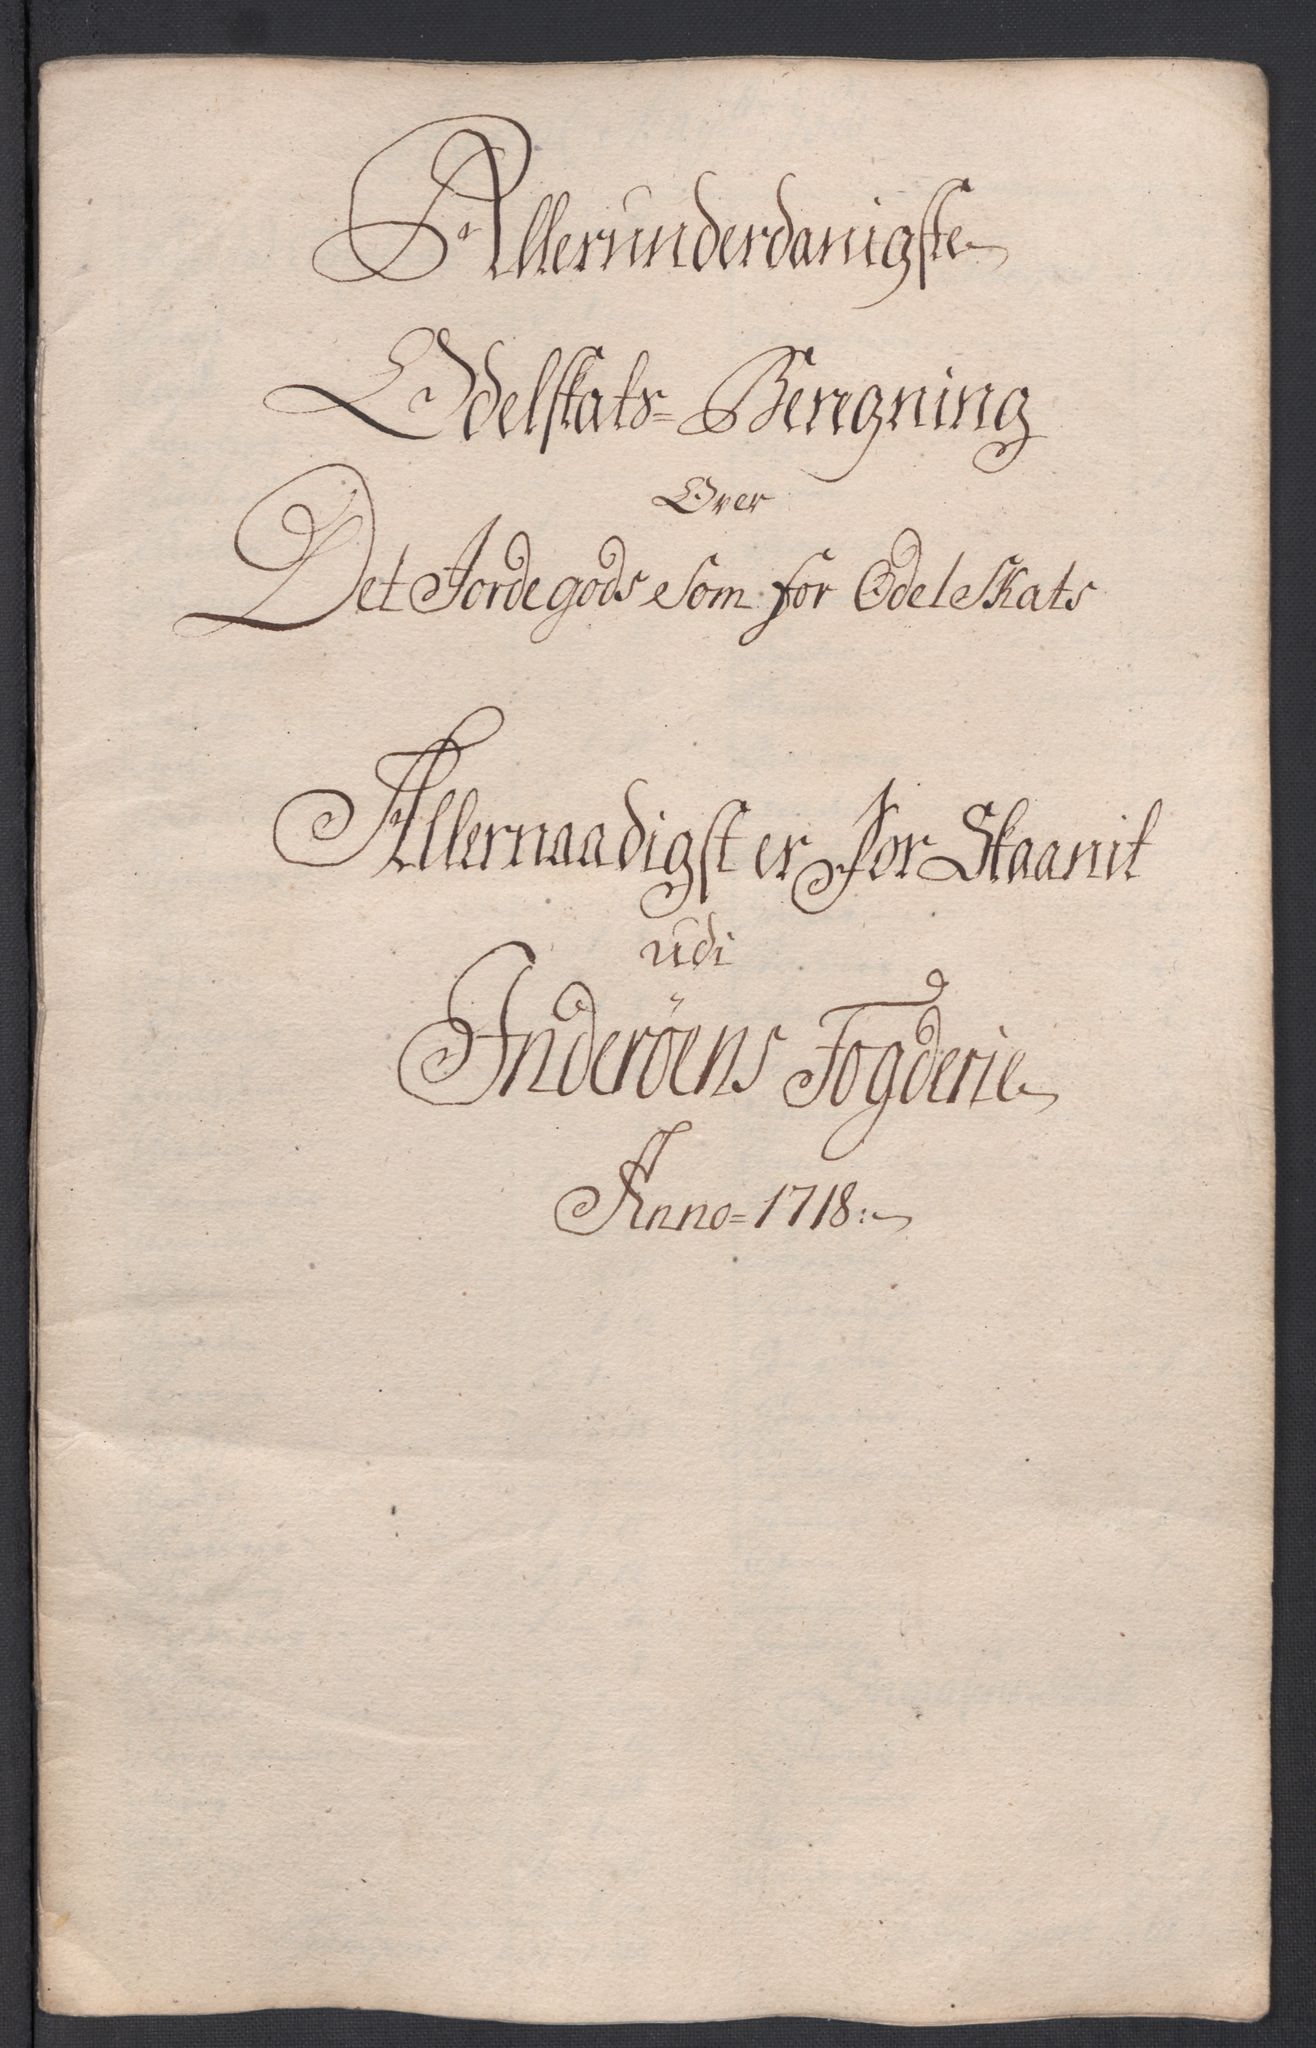 Allerunderdanigste
Odelskats- Beregning
Over
Det Jordegods som for Odelskats
Allernaadigst er forskaanit
udi
Inderöens Fogderie
Anno= 1718: